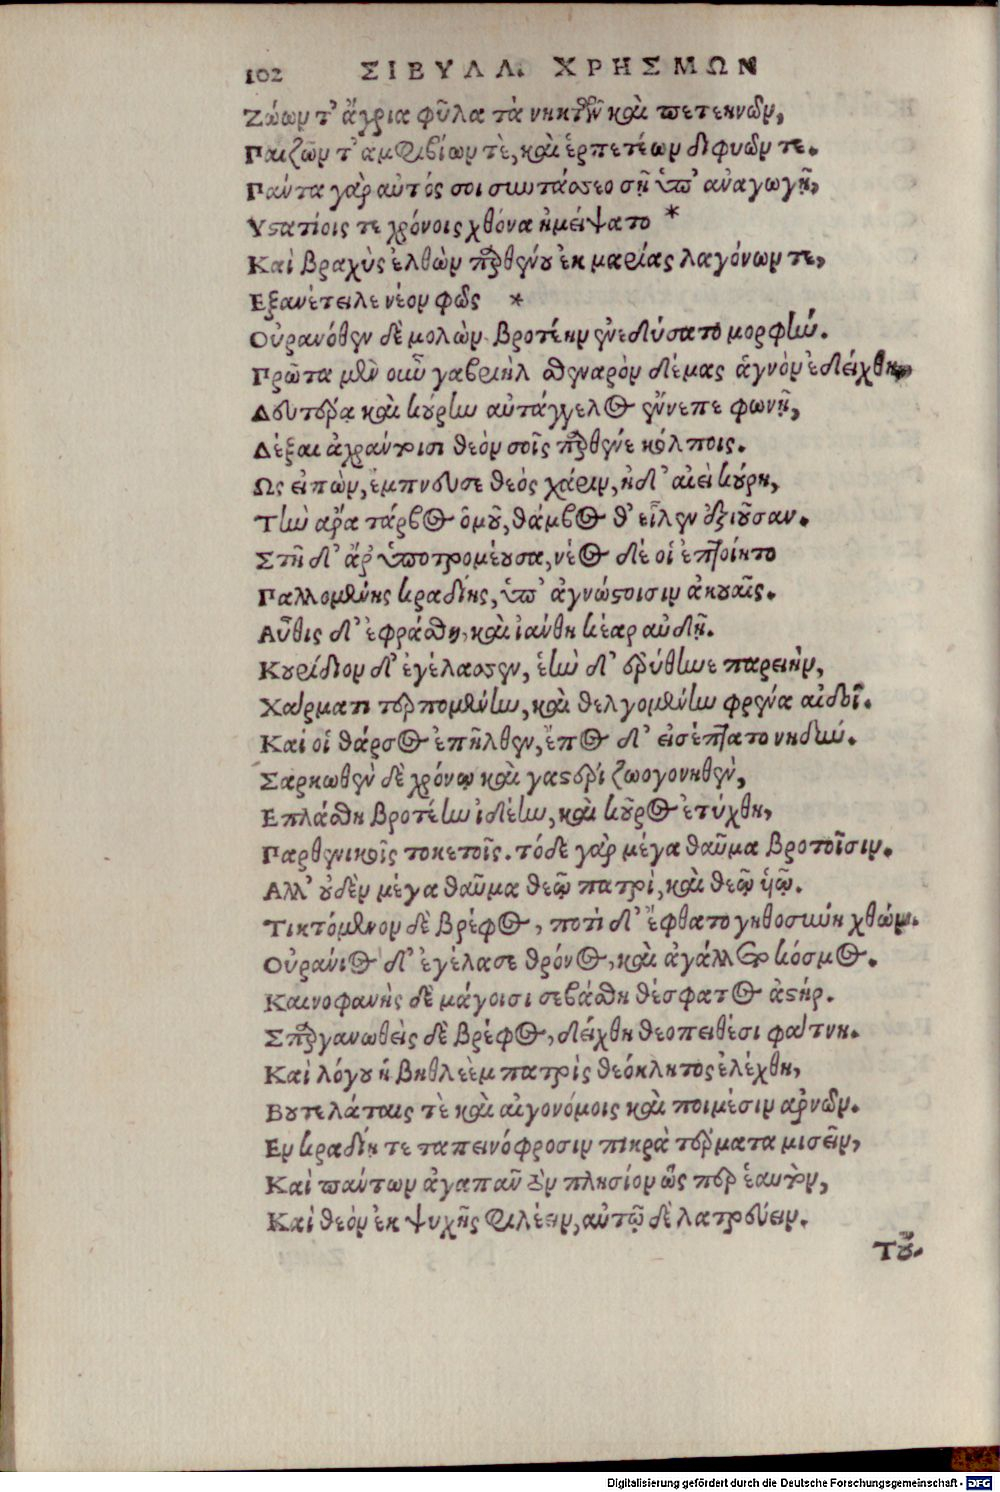 102 ΣΙΒΥΛΛ. ΧΡΗΣΜΩΝ
Ζώων τ' ἄγρια φῦλα τὰ νηκτῶν καὶ πετεηνῶν,
Παιζῶν τ' αμφιβίων τὲ, καὶ ἑρπετέων διφυῶν τε.
Πάντα γὰρ αὐτός σοι συνετάσσεο σῇ ὑπ' ἀναγωγῇ,
Υστατίοις τε χρόνοις χθόνα ἠμείψατο *
Καὶ βραχὺς ἐλθὼν παρθένου ἐκ μαρίας λαγόνων τε,
Εξανέτειλε νέον φῶς *
Οὐρανόθεν δὲ μολὼν βροτέην ἐνεδύσατο μορφήν.
Πρῶτα μὲν οὖν γαβριὴλ σθεναρὸν δέμας ἁγνὸν ἐδείχθη,
Δευτέρα καὶ κούρην αὐτάγγελος ἔννεπε φωνῇ,
Δέξαι ἀχράντοισι θεὸν σοῖς παρθένε κόλποις.
Ως εἰπὼν, ἔμπνευσε θεὸς χάριν, ἡ δ' αἰεὶ κούρη,
Τὴν ἄρα τάρβος ὁμοῦ, θάμβος θ' εἷλεν ἀξιοῦσαν.
Στῆ δ' ἄρ ὑποτρομέουσα, νέος δέ οἱ ἐπτοίητο
Παλλομένης κραδίης, ὑπ' ἀγνώστοισιν ἀκουαῖς.
Αὖθις δ' ἐφράσθη, καὶ ἰάνθη κέαρ αὐδῇ.
Κουρίδιον δ' ἐγέλασσεν, ἑὴν δ' ἐρύθηνε παρειὴν,
Χάρματι τερπομένην, καὶ θελγομένην φρένα αἰδοῖ.
Καί οἱ θάρσος ἐπῆλθεν, ἔπος δ' εἰσέπτατο νηδύν.
Σαρκωθὲν δὲ χρόνῳ καὶ γαστέρι ζωογονηθὲν,
Επλάσθη βροτέην ἰδέην, καὶ κοῦρος ἐτύχθη,
Παρθενικοῖς τοκετοῖς. τόδε γὰρ μέγα θαῦμα βροτοῖσιν.
Αλλ' οὐδὲν μέγα θαῦμα θεῷ πατρὶ, καὶ θεῷ υἱῷ.
Τικτόμενον δὲ βρέφος, ποτὶ δ' ἔφθατο γηθοσύνη χθών.
Οὐράνιος δ' ἐγέλασε θρόνος, καὶ ἀγάλλετο κόσμος.
Καινοφανὴς δὲ μάγοισι σεβάσθη θέσφατος ἀστήρ.
Σπαργανωθεὶς δὲ βρέφος, δείχθη θεοπειθέσι φάτνη.
Καὶ λόγου ἡ βηθλεὲμ πατρὶς θεόκλητος ἐλέχθη,
Βουτελάταις τὲ καὶ αἰγονόμοις καὶ ποιμέσιν ἀρνῶν.
Εν κραδίῃ τε ταπεινόφροσιν πικρὰ τέρματα μισεῖν,
Καὶ πάντων ἀγαπᾶν τὸν πλησίον ὥς περ ἑαυτὸν,
Καὶ θεὸν ἐκ ψυχῆς φιλέειν, αὐτῷ δὲ λατρεύειν.
Τοὔ-
Digitalisierung gefördert durch die Deutsche Forschungsgemeinschaft - DFG